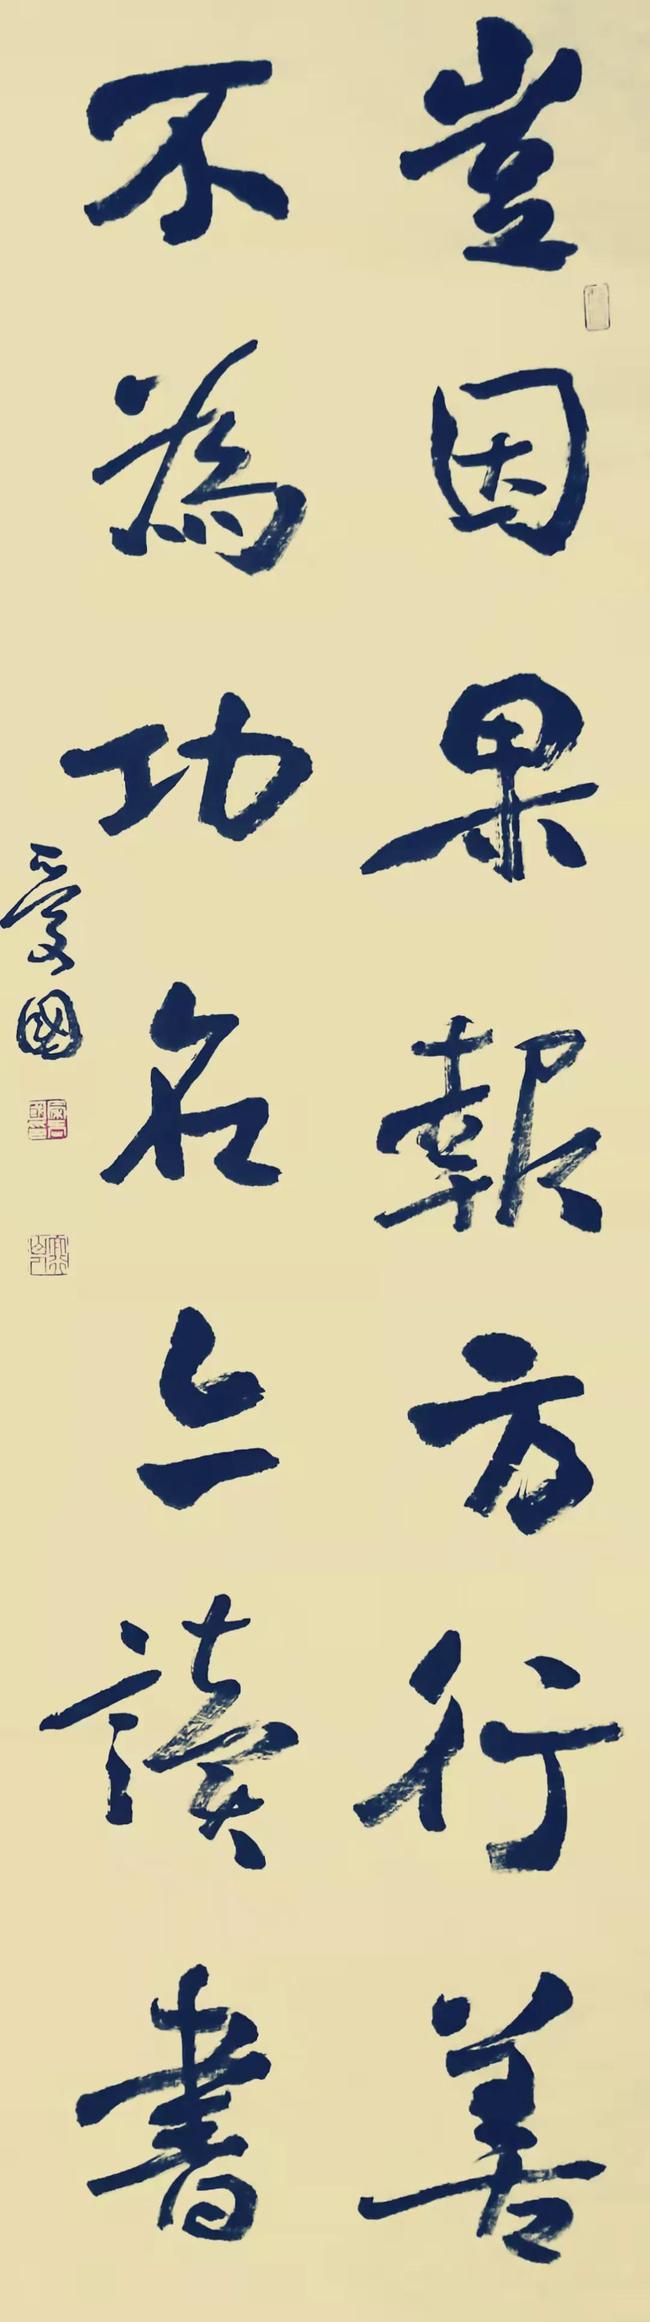 豈因果報方行善
不為功名亦讀書
愛國